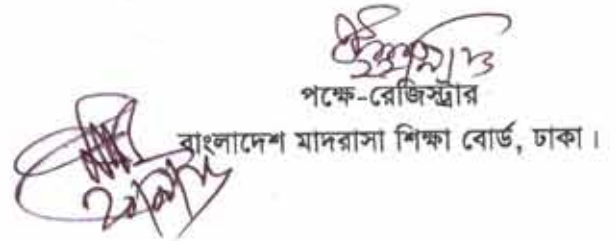 পক্ষে-রেজিস্ট্রার
বাংলাদেশ মাদরাসা শিক্ষা বোর্ড, ঢাকা।